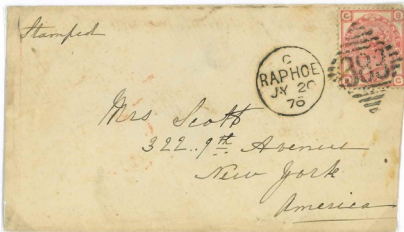 Stamped
C
RAPHOE
JY 26
76
383
C B
C
Mrs Scott
322..9th Avenue
New York
America